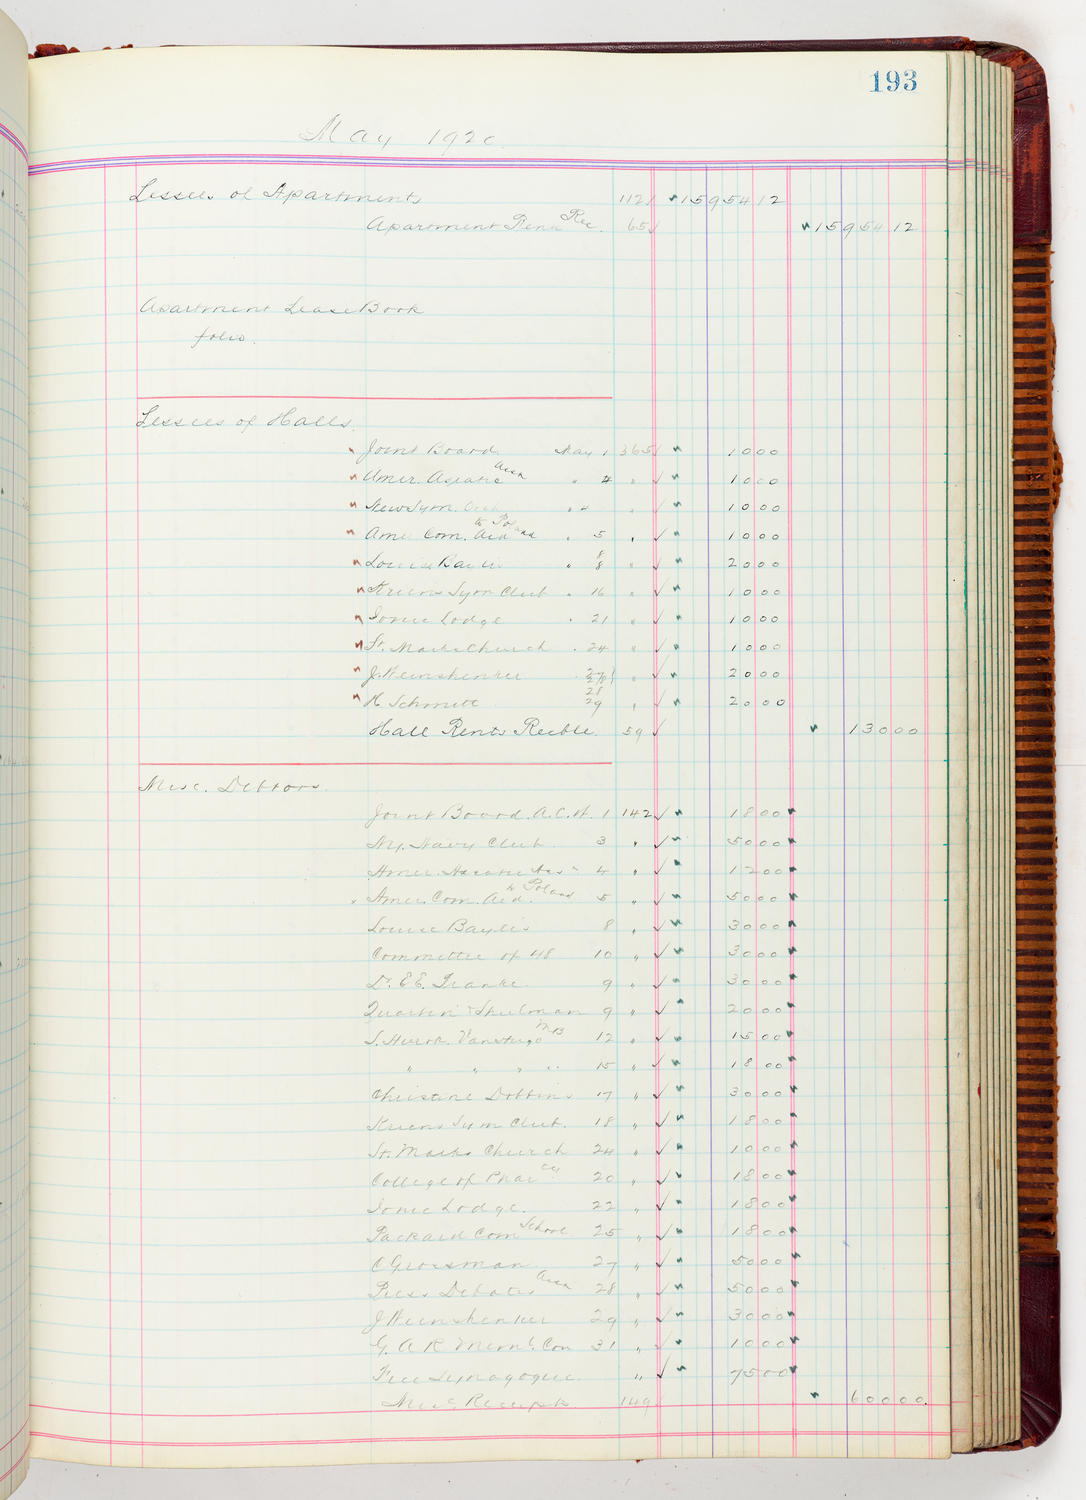 193
May 1920.
Lessees of Apartments 112 15954 12
Apartment Rents Rec. 65 15954 12
Apartment Lease Book
folio.
Lessees of Halls.
Joint Board May 1 365 10 00
Amer. Asiatic Assn " 4 " 10 00
New Sym. " 4 " 10 00
Amer Com. Aid to Poland " 5 " 10 00
Louise Baylis " 8 " 20 00
Kriens Sym Club " 16 " 10 00
Ionic Lodge " 21 " 10 00
St. Marks Church " 24 " 10 00
J. Weinshenker " 20 00
H Schmitt 28 29 " 20 00
Hall Rents Recble. 59 130 00
Misc. Debtors.
Joint Board. A.C.H. 1 142 18 00
Ny. Navy Club 3 " 50 00
Amer. Asiatic Assn 4 " 12 00
Amer. Com. Aid. to Poland 5 " 50 00
Louise Baylis 8 " 30 00
Committee of 48 10 " 30 00
Dr. E.E. Franke. 9 " 30 00
& Shulman 9 " 20 00
S. 12 " 15 00
" " " " 15 " 18 00
Christine Dobbins 17 " 30 00
Kriens Sym Club. 18 " 18 00
St. Marks Church 24 " 10 00
College of Phar cy 20 " 18 00
Ionic Lodge. 22 " 18 00
Packard Com School 25 " 18 00
C Grossman 27 " 50 00
Press Debate Assn 28 " 50 00
J Weinshenker 29 " 30 00
G. A R Meml. Com 31 " 10 00
Free Synagogue. " 75 00
Misc Receipts 149 600 00